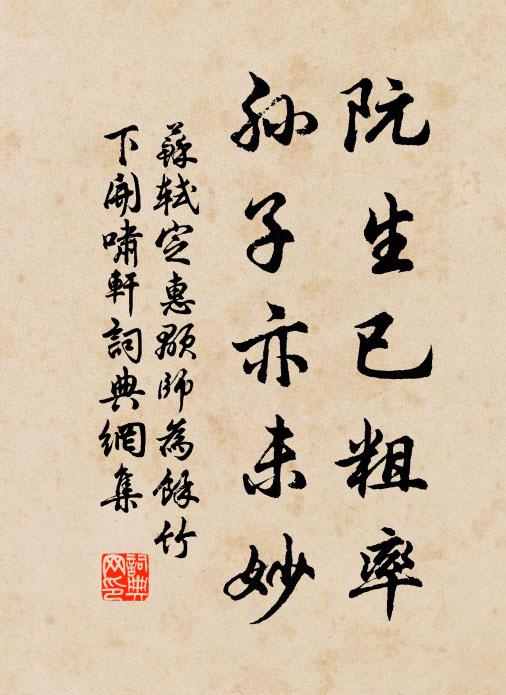 阮生已粗率
孙子亦未妙
蘇軾定惠顒師為餘竹
下開嘯軒詞典網集
詞典
网印